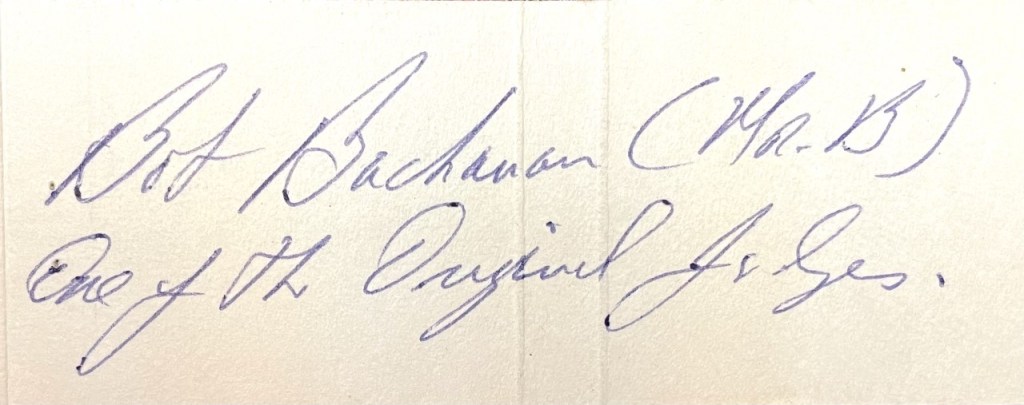 Bob Buchanan (Mr. B)
One of the Original Judges.